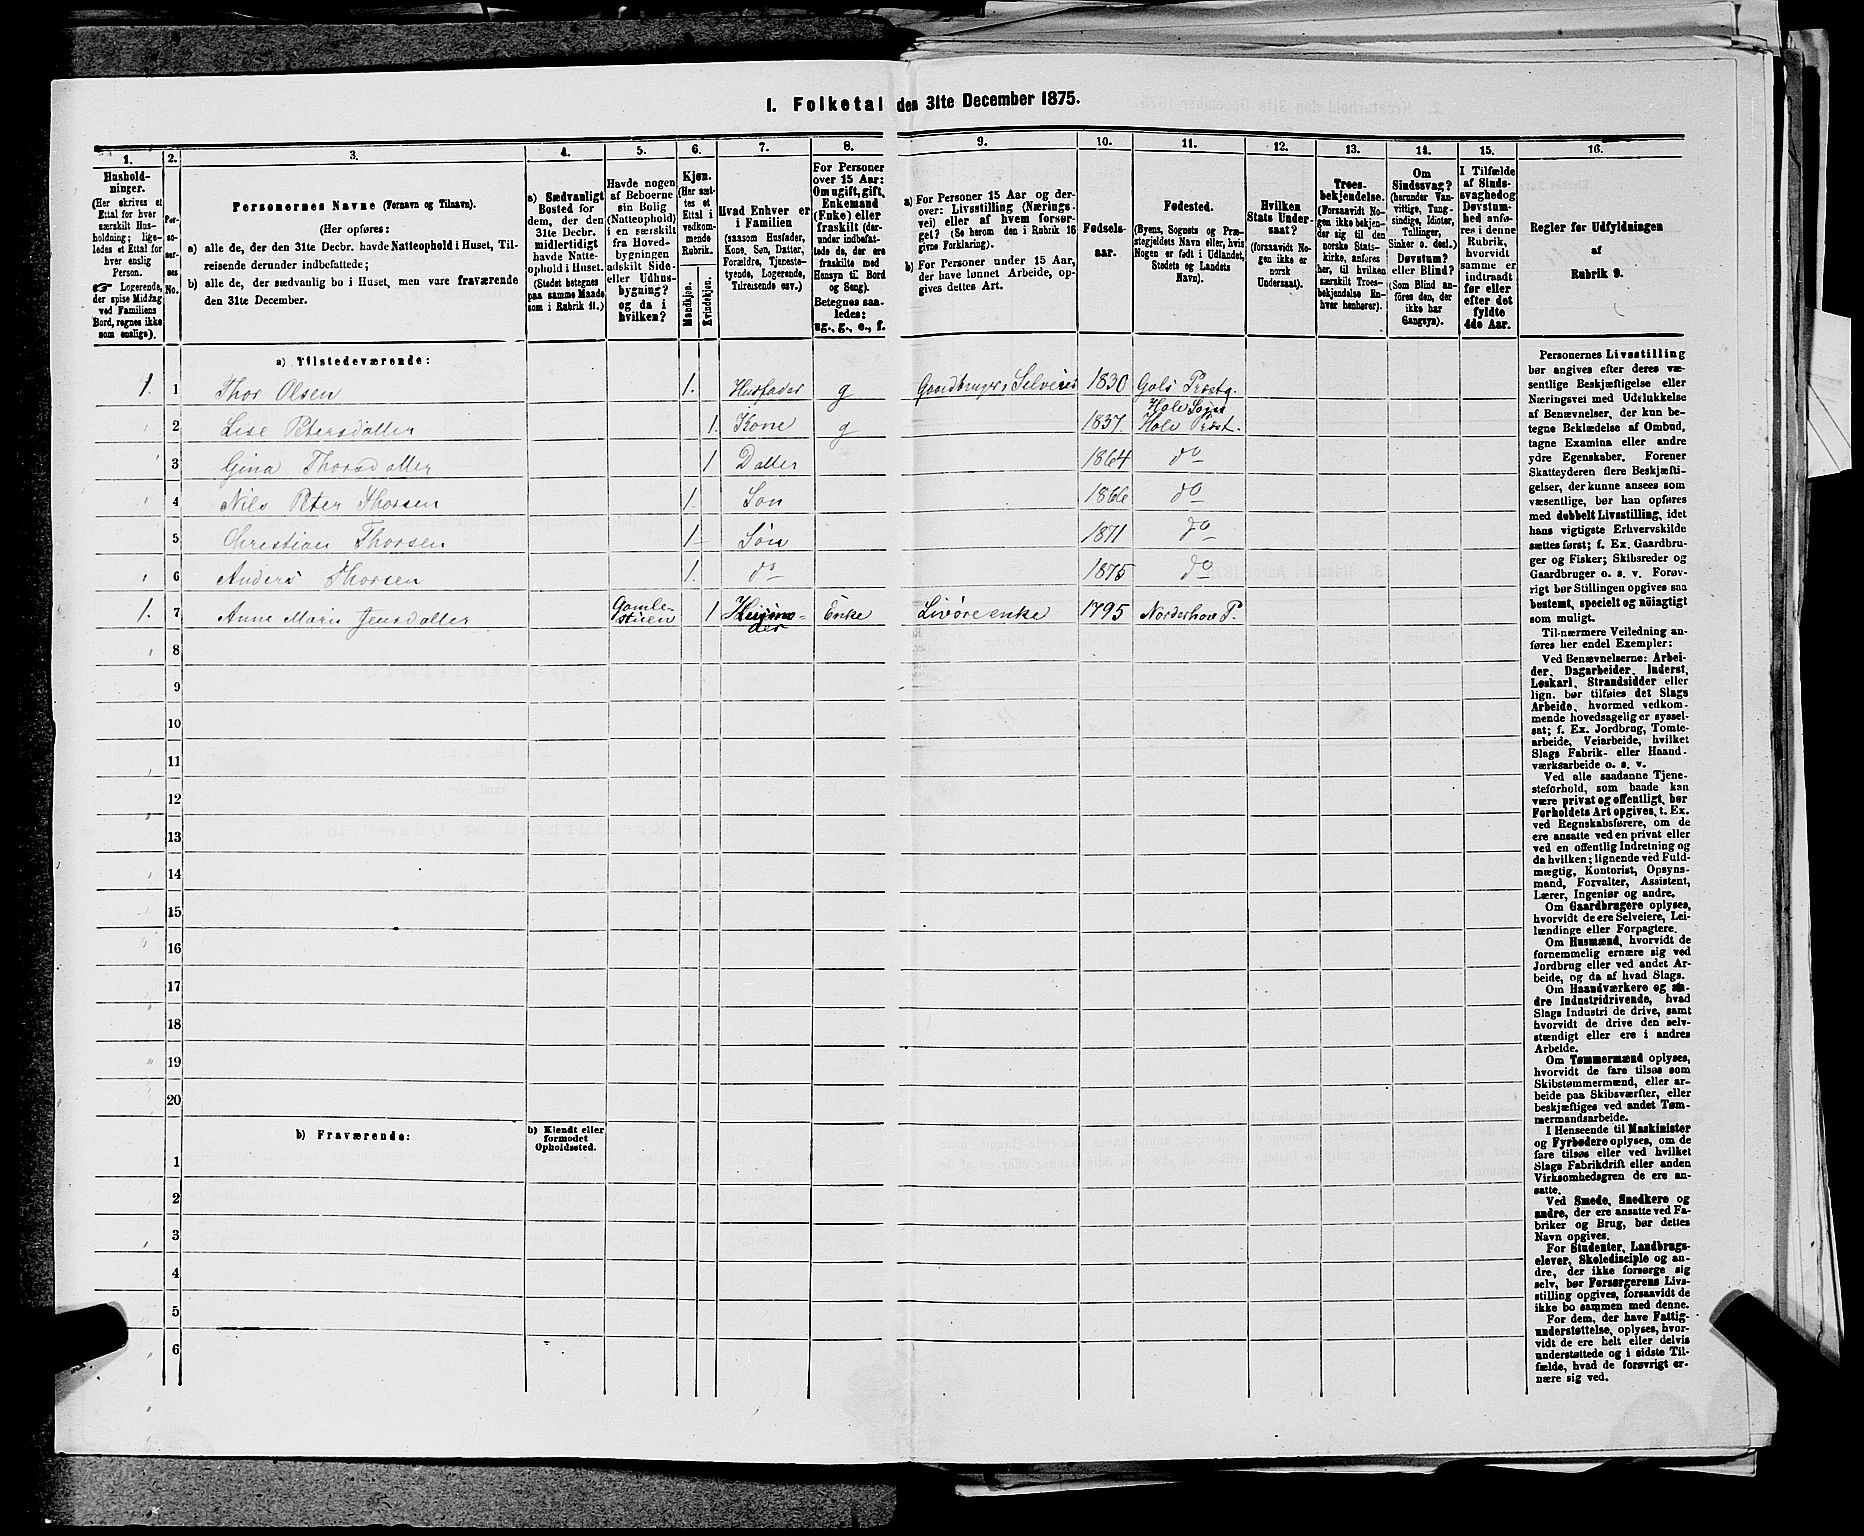 1. Folketal den 31te December 1875.
1. 2. 3. 4. 5. 6. 7. 8. 9. 10. 11. 12. 13. 14. 15. 16.
Hushold-
ninger.
(Her skrives et
Ettal for hver
særskilt Hus-
holdning; lige-
ledes et Ettal for
hver enslig
Person.
☞ Logerende,
der spise Middag
ved Familiens
Bord, regnes ikke
som enslige).
Per-
soner-
nes
No.
Personernes Navne (Fornavn og Tilnavn).
(Her opføres:
a) alle de, der den 31te Decbr. havde Natteophold i Huset, Til-
reisende derunder indbefattede;
b) alle de, der sædvanlig bo i Huset, men vare fraværende
den 31te December.
a) Sædvanligt
Bosted for
dem, der den
31te Decbr.
midlertidigt
havde Natte-
ophold i Huset.
(Stedet betegnes
paa samme Maade
som i Rubrik 11.)
Havde nogen
af Beboerne
sin Bolig
(Natteophold)
i en særskilt
fra Hoved-
bygningen
adskilt Side-
eller Udhus-
bygning?
og da i
hvilken?
Kjøn.
(Her sæt-
tes et
Ettal i
vedkom-
mende
Rubrik.
Mandkjøn.
Kvindekjøn.
Hvad Enhver er
i Familien
(saasom Husfader,
Kone, Søn, Datter,
Forældre, Tjeneste-
tyende, Logerende,
Tilreisende osv.)
For Personer
over 15 Aar:
Om ugift, gift,
Enkemand
(Enke) eller
fraskilt (der-
under indbefat-
tede de, der ere
fraskilte med
Hensyn til Bord
og Seng).
Betegnes saa-
ledes:
ug., g., e., f.
a) For Personer 15 Aar og der-
over: Livsstilling (Nærings-
vei) eller af hvem forsør-
get? (Se herom den i Rubrik 16
givne Forklaring).
b) For Personer under 15 Aar,
der have lønnet Arbeide, op-
gives dettes Art.
Fødsels-
aar.
Fødested.
(Byens, Sognets og Præ-
stegjeldets Navn eller, hvis
Nogen er født i Udlandet,
Stedets og Landets
Navn).
Hvilken
Stats Under-
saat?
(forsaavidt No-
gen ikke er
norsk
Undersaat).
Troes-
bekjendelse.
(Forsaavidt No-
gen ikke bekjen-
der sig til den
norske Stats-
kirke, anføres
her, til hvilken
særskilt Troes-
bekjendelse En-
hver henhører).
Om
Sindssvag?
(herunder Van-
vittige, Tung-
sindige, Idioter,
Tullinger,
Sinker o. desl.)
Døvstum?
eller Blind?
(Som Blind an-
føres den, der
ikke har
Gangsyn).
I Tilfælde
af Sinds-
svaghed og
Døvstum-
hed anfø-
res i denne
Rubrik,
hvorvidt
samme er
indtraadt
før eller
efter det
fyldte
4de Aar.
Regler for Udfyldningen
af
Rubrik 9.
a) Tilstedeværende:
1. 1 Thor Olsen 1. Husfader g Gaardbruger, Selveier 1830 Gols Præstg.
Hole Sogn
2 Lise Petersdatter 1. Kone g 1837. Hole Præst.
3 Gina Thorsdatter 1 Datter 1864 do
4 Nils Peter Thorsen 1. Søn 1866 do
5 Christian Thorsen 1 Søn 1871 do
6 Anders Thorsen 1. do 1875 do
1. 7 Anne Marie Jensdatter Gamle-
stuen 1 Enke Livøreenke 1795 Norderhov P.
8
9
10
11
12
13
14
15
16
17
18
19
20
b) Fraværende:
b) Kjendt eller
formodet
Opholdssted.
1
2
3
4
5
6
Personernes Livsstilling
bør angives efter deres væ-
sentlige Beskjæftigelse eller
Næringsvei med Udelukkelse
af Benævnelser, der kun be-
tegne Beklædelse af Ombud,
tagne Examina eller andre
ydre Egenskaber. Forener
Skatteyderen flere Beskjæfti-
gelser, der kunne ansees som
væsentlige, bør han opføres
med dobbelt Livsstilling, idet
hans vigtigste Erhvervskilde
sættes først; f. Ex. Gaardbru-
ger og Fisker; Skibsreder og
Gaardbruger o. s. v. Forøv-
rigt bør Stillingen opgives saa
bestemt, specielt og nøiagtigt
som muligt.
Til nærmere Veiledning an-
føres her endel Exempler:
Ved Benævnelserne: Arbei-
der, Dagarbeider, Inderst,
Løskarl, Strandsidder eller
lign. bør tilføies det Slags
Arbeide, hvormed vedkom-
mende hovedsagelig er syssel-
sat; f. Ex. Jordbrug, Tomte-
arbeide, Veiarbeide, hvilket
Slags Fabrik- eller Haand-
værksarbeide o. s. v.
Ved alle saadanne Tjene-
steforhold, som baade kan
være privat og offentligt, bør
Forholdets Art opgives, t. Ex.
ved Regnskabsførere, om de
ere ansatte ved en privat eller
ved en offentlig Indretning og
da hvilken; lignende ved Fuld-
mægtig, Kontorist, Opsyns-
mand, Forvalter, Assistent,
Lærer, Ingeniør og andre.
Om Gaardbrugere oplyses,
hvorvidt de ere Selveiere, Lei-
lændinge eller Forpagtere.
Om Husmænd, hvorvidt de
fornemmelig ernære sig ved
Jordbrug eller ved andet Ar-
beide, og da af hvad Slags.
Om Haandværkere og an-
dre Industridrivende, hvad
Slags Industri de drive, samt
hvorvidt de drive den selv-
stændigt eller ere i andres
Arbeide.
Om Tømmermænd oplyses,
hvorvidt de fare tilsøs som
Skibstømmermænd, eller ar-
beide paa Skibsværfter, eller
beskjæftiges ved andet Tøm-
mermandsarbeide.
I Henseende til Maskinister
og Fyrbødere oplyses, om de
fare tilsøs eller ved hvilket
Slags Fabrikdrift eller anden
Virksomhedsgren de ere an-
satte.
Ved Smede, Snedkere og
andre, der ere ansatte ved Fa-
briker og Brug, bør dettes
Navn opgives.
For Studenter, Landbrugs-
elever, Skoledisciple og an-
dre, der ikke forsørge sig
selv, bør Forsørgerens Livs-
stilling opgives, forsaavidt de
ikke bo sammen med denne.
For dem, der have Fattig-
understøttelse, oplyses, hvor-
vidt de ere helt eller delvis
understøttede og i sidste Til-
fælde, hvad de forøvrigt er-
nære sig ved.